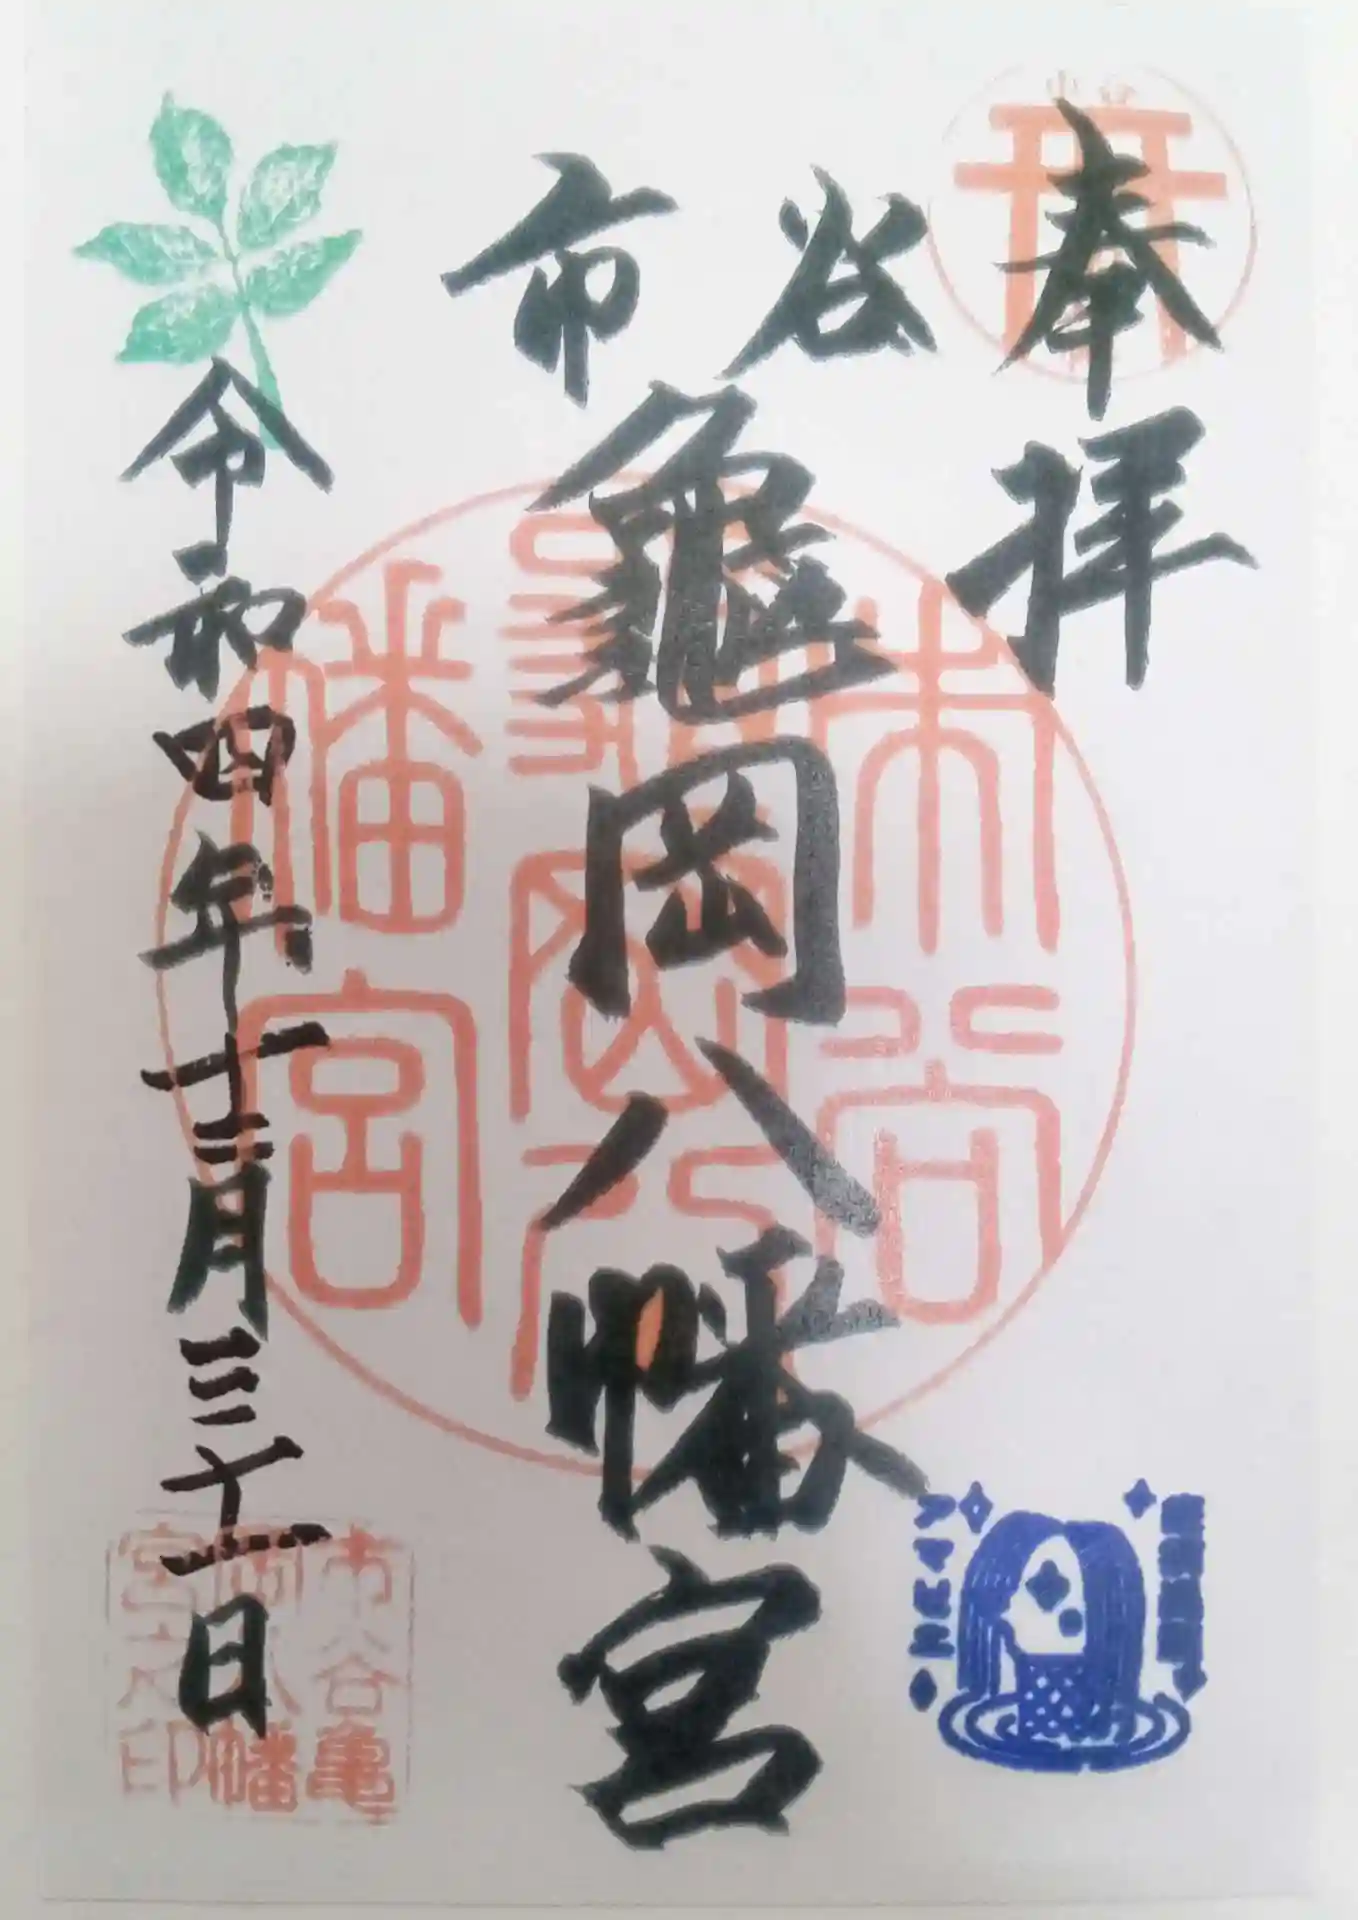 奉拝
市谷
亀岡八幡宮
令和四年十二月三十一日
市谷
亀岡八
幡宮
市谷亀
岡八幡
宮之印